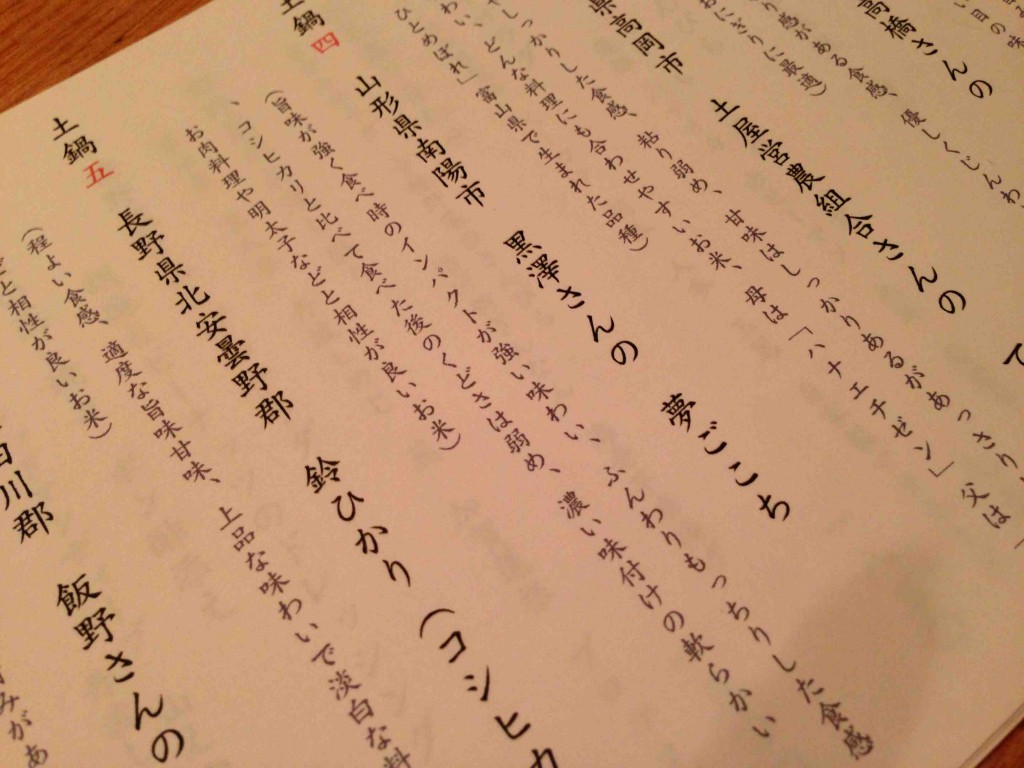 い目の味
高橋さんの
り感がある食感、優しくじんわ
おにぎりに最適)
土屋営農組合さんの
県高岡市
しっかりした食感、粘り弱め、甘味はしっかりあるがあっさり
わい、どんな料理にも合わせやすいお米、母は「ハナエチゼン」父は「
ひとめぼれ」富山県で生まれた品種)
土鍋四
山形県南陽市 黒澤さんの 夢ごこち
(旨味が強く食べ時のインパクトが強い味わい、ふんわりもっちりした食感
、コシヒカリと比べて食べた後のくどさは弱め、濃い味付けの軟らかい
お肉料理や明太子などと相性が良いお米)
土鍋五
長野県北安曇野郡 鈴ひかり(コシヒカ
(程よい食感、適度な旨味甘味、上品な味わいで淡白な料
と相性が良いお米)
白川郡 飯野さんの